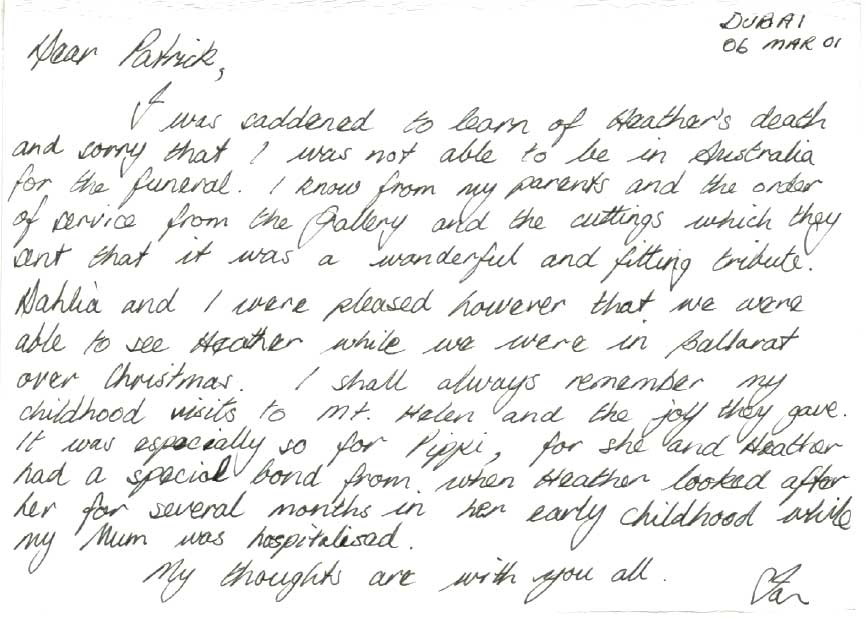 DUBAI
06 MAR 01
Dear Patrick,
I was saddened to learn of Heather's death
and sorry that I was not able to be in Australia
for the funeral. I know from my parents and the order
of service from the Gallery and the cuttings which they
sent that it was a wonderful and fitting tribute.
Dahlia and I were pleased however that we were
able to see Heather while we were in Ballarat
over Christmas. I shall always remember my
childhood visits to Mt. Helen and the joy they gave.
It was especially so for Pippi, for she and Heather
had a special bond from when Heather looked after
her for several months in her early childhood while
my Mum was hospitalised.
My thoughts are with you all.
Ian